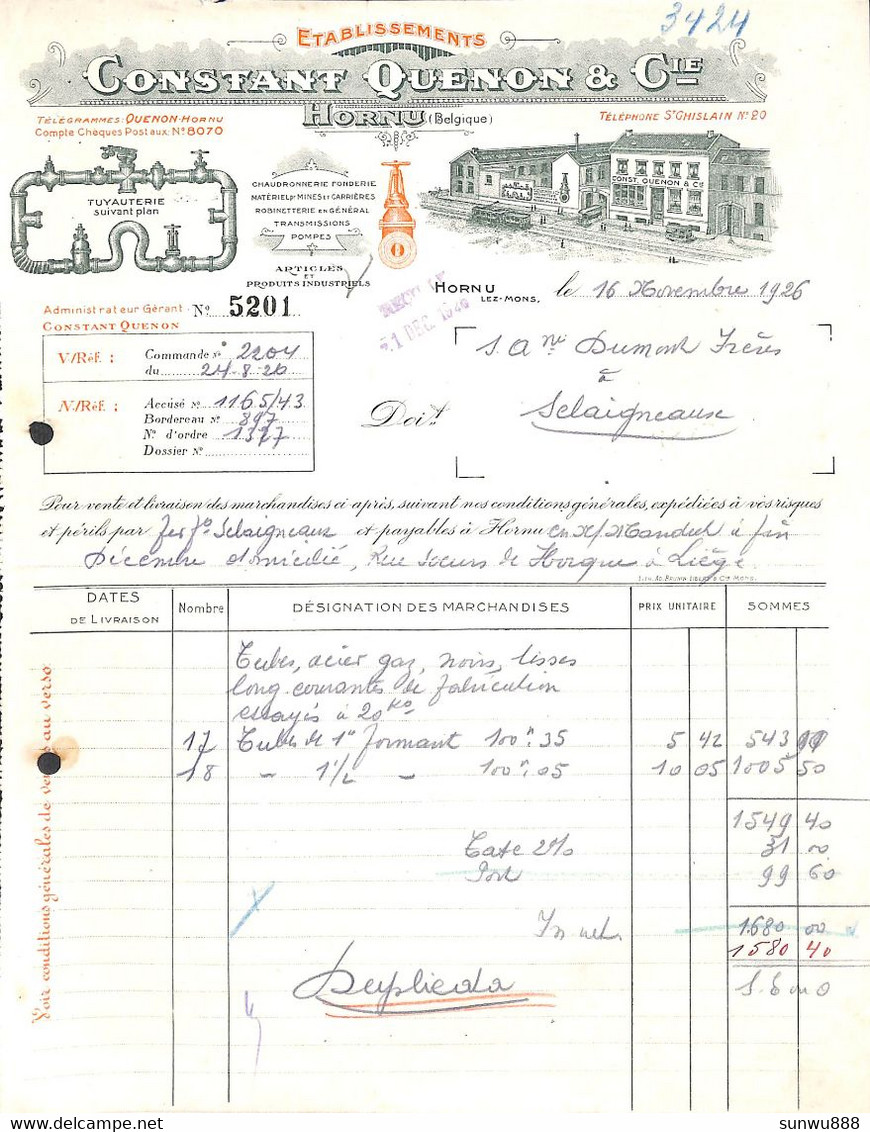 3424
ETABLISSEMENTS
CONSTANT QUENON & CIE
HORNU (Belgique)
TÉLÉGRAMMES: QUENON-HORNU
Compte Chèques Postaux: N° 8070
TÉLÉPHONE ST GHISLAIN N° 20
TUYAUTERIE
suivant plan
CHAUDRONNERIE FONDERIE
MATÉRIEL Pr MINES ET CARRIÈRES
ROBINETTERIE EN GÉNÉRAL
TRANSMISSIONS
POMPES
ARTICLES
ET
PRODUITS INDUSTRIELS
CONST. QUENON & Cie
HORNU
LEZ-MONS,
le 16 Novembre 1926
Administrateur Gérant
CONSTANT QUENON
N° 5201
31 DEC. 1926
V/Réf. :
Commande N° 2204
du 24-8-26
N/Réf. :
Accusé N° 1165/43
Bordereau N° 897
N° d'ordre 1327
Dossier N°
S. A. me Dumont Frères
à
Sclaigneaux
Doit
Pour vente et livraison des marchandises ci après, suivant nos conditions générales, expédiées à vos risques
et périls par fer fo Sclaigneaux et payables à Hornu en n/ Mandat à fin
Décembre domicilié, Rue Soeurs de Hasque à Liège
DATES
DE LIVRAISON
Nombre
DÉSIGNATION DES MARCHANDISES
PRIX UNITAIRE
SOMMES
Tubes, acier gaz, noirs, lisses
long. courantes de fabrication
essayés à 20 ko
17 Tubes de 1" formant 100m35 5 42 543 90
18 - 1 1/2 - 100m05 10 05 1005 50
1549 40
Taxe 2% 31 00
Port 99 60
1680 00
1580 40
S. E. ou O
Duplicata
Voir conditions générales de vente au verso
sunwu888